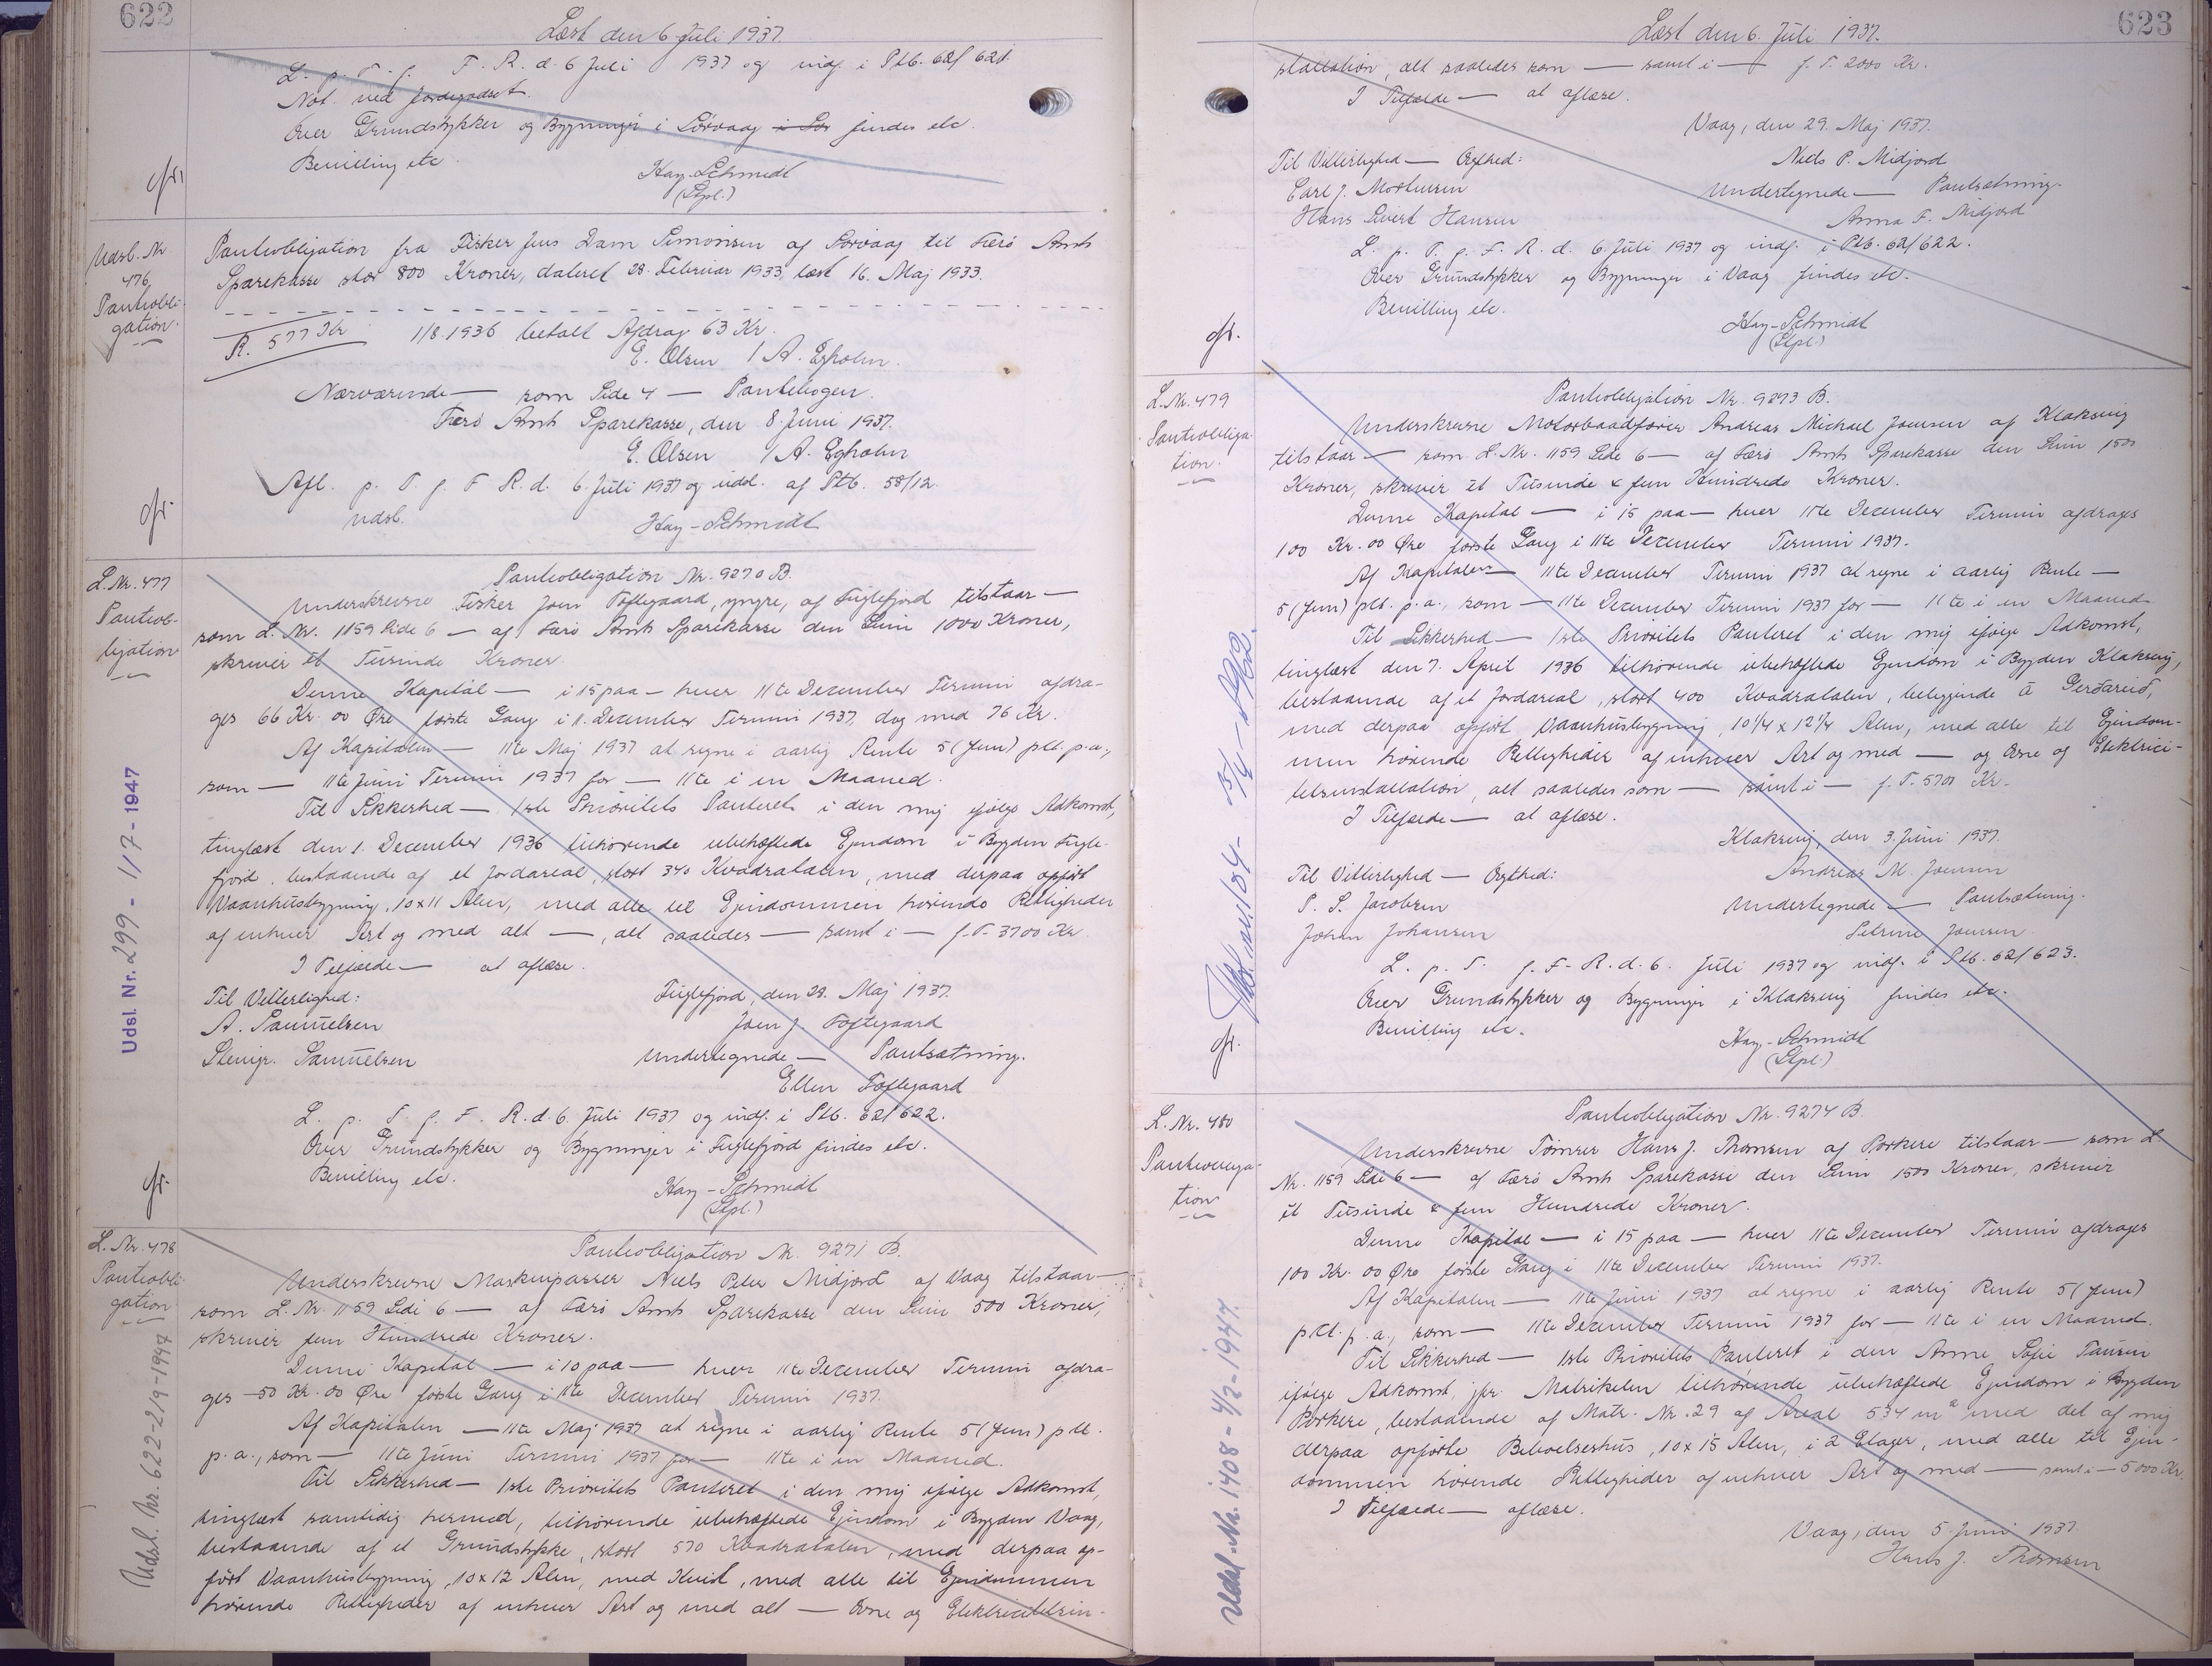 622
Læst den 6 Juli 1937
L. p. T. f. F. R. d. 6 Juli 1937 og indf. i Ptb. 62/621.
Not. ved Jordegodset.
Over Grundstykker og Bygninger i Sörvaag i Sör findes etc.
Bevilling etc.
Hay-Schmidt
(Stpl.)
Udsl. Nr
476
Pantobli-
gation.
Panteobligation fra Fisker Jens Dam Simonsen af Sörvaag til Færö Amts
Sparekasse stor 800 Kroner, dateret 28. Februar 1933, læst 16. Maj 1933.
R. 577 Kr 1/8.1936 betalt Afdrag 63 Kr.
E. Olsen / A. Egholm.
Nærværende — som Side 4 — Pantebogen.
Færö Amts Sparekasse, den 8. Juni 1937.
E. Olsen / A. Egholm
Afl. p. T. f. F R. d. 6. Juli 1937 og udsl. af Ptb. 58/12.
udsl.
Hay-Schmidt
L. Nr. 477
Panteob-
ligation
Panteobligation Nr. 9270 B.
Underskrevne Fisker Joen Toftegaard, yngre, af Fuglefjord tilstaar —
som L. Nr. 1159 Side 6 — af Færö Amts Sparekasse den Sum 1000 Kroner,
skriver et Tusinde Kroner.
Denne Kapital — i 15 paa — hver 11te December Termin afdra-
ges 66 Kr. 00 Øre første Gang i 11. December Termin 1937, dog med 76 Kr.
Af Kapitalen — 11te Maj 1937 at regne i aarlig Rente 5 (fem) pCt. p.a.,
som — 11te Juni Termin 1937 for — 11te i en Maaned.
Til Sikkerhed — 1ste Prioritets Panteret i den mig ifølge Adkomst,
tinglæst den 1. December 1936 tilhørende ubehæftede Ejendom i Bygden Fugle-
fjord, bestaaende af et Jordareal, stort 340 Kvadratalen, med derpaa opført
Vaanhusbygning, 10 x 11 Alen, med alle til Ejendommen hørende Rettigheder
af enhver Art og med alt —, alt saaledes — samt i — f. T. 3700 Kr.
I Tilfælde — at aflæse.
Til Vitterlighed:
Fuglefjord, den 29. Maj 1937.
A. Samuelsen
Joen J. Toftegaard
Steingr. Samuelsen
Undertegnede — Pantsætning.
Ellen Toftegaard
L. p. T. f. F. R. d. 6. Juli 1937 og indf. i Ptb. 62/622.
Over Grundstykker og Bygninger i Fuglefjord findes etc.
Bevilling etc.
Hay-Schmidt
(Stpl.)
Udsl. Nr. 299 - 1/7 - 1947
L. Nr. 478
Panteobli-
gation
Panteobligation Nr. 9271 B.
Underskrevne Maskinpasser Niels Peter Midjord af Vaag tilstaar —
som L. Nr. 1159 Side 6 — af Færö Amts Sparekasse den Sum 500 Kroner,
skriver fem Hundrede Kroner.
Denne Kapital — i 10 paa — hver 11te December Termin afdra-
ges 50 Kr. 00 Øre første Gang i 11te December Termin 1937.
Af Kapitalen — 11te Maj 1937 at regne i aarlig Rente 5 (fem) pCt.
p.a., som — 11te Juni Termin 1937 for — 11te i en Maaned.
Til Sikkerhed — 1ste Prioritets Panteret i den mig ifølge Adkomst,
tinglæst samtidig hermed, tilhørende ubehæftede Ejendom i Bygden Vaag,
bestaaende af et Grundstykke, stort 570 Kvadratalen, med derpaa op-
ført Vaanhusbygning, 10 x 12 Alen, med Kvist, med alle til Ejendommen
hørende Rettigheder af enhver Art og med alt — Ovne og Elektricitetsin-
Udsl. Nr. 622 - 2/9 - 1947
623
Læst den 6. Juli 1937.
stallation, alt saaledes som — samt i — f. T. 2000 Kr.
I Tilfælde — at aflæse.
Vaag, den 29. Maj 1937.
Til Vitterlighed — Ægthed:
Niels P. Midjord
Carl J. Mortensen
Undertegnede — Pantsætning.
Hans Sivert Hansen
Anna F. Midjord
L. p. T. f. F. R. d. 6. Juli 1937 og indf. i Ptb. 62/622.
Over Grundstykker og Bygninger i Vaag findes etc.
Bevilling etc.
Hay-Schmidt
(Stpl.)
L. Nr. 479
Panteobliga-
tion.
Panteobligation Nr. 9273 B.
Underskrevne Motorbaadfører Andreas Michael Joensen af Klaksvig
tilstaar — som L. Nr. 1159 Side 6 — af Færö Amts Sparekasse den Sum 1500
Kroner, skriver et Tusinde & fem Hundrede Kroner.
Denne Kapital — i 15 paa — hver 11te December Termin afdrages
100 Kr. 00 Øre første Gang i 11te December Termin 1937.
Af Kapitalen — 11te December Termin 1937 at regne i aarlig Rente —
5 (fem) pCt. p.a., som — 11te December Termin 1937 for — 11te i en Maaned
Til Sikkerhed — 1ste Prioritets Panteret i den mig ifølge Adkomst,
tinglæst den 7. April 1936 tilhørende ubehæftede Ejendom i Bygden Klaksvig,
bestaaende af et Jordareal, stort 400 Kvadratalen, beliggende á Gerðareið,
med derpaa opført Vaanhusbygning, 10 1/4 x 12 1/4 Alen, med alle til Ejendom-
men hørende Rettigheder af enhver Art og med — og Ovne og Elektrici-
tetsinstallation, alt saaledes som — samt i — f. T. 5700 Kr.
I Tilfælde — at aflæse.
Klaksvig, den 3. Juni 1937.
Til Vitterlighed — Ægthed:
Andreas M. Joensen
P. S. Jacobsen
Undertegnede — Pantsætning.
Johan Johansen
Petrine Joensen
L. p. T. f. F. R. d. 6. Juli 1937 og indf. i Ptb. 62/623.
Over Grundstykker og Bygninger i Klaksvig findes etc.
Bevilling etc.
Hay-Schmidt
(Stpl.)
L. Nr. 480
Panteobliga-
tion
Panteobligation Nr. 9274 B.
Underskrevne Tømrer Hans J. Thomsen af Porkere tilstaar — som L.
Nr. 1159 Side 6 — af Færö Amts Sparekasse den Sum 1500 Kroner, skriver
et Tusinde & fem Hundrede Kroner.
Denne Kapital — i 15 paa — hver 11te December Termin afdrages
100 Kr. 00 Øre første Gang i 11te December Termin 1937.
Af Kapitalen — 11te Juni 1937 at regne i aarlig Rente 5 (fem)
pCt. p.a., som — 11te December Termin 1937 for — 11te i en Maaned.
Til Sikkerhed — 1ste Prioritets Panteret i den Anne Sofie Poulsen
ifølge Adkomst, jfr. Matrikelen tilhørende ubehæftede Ejendom i Bygden
Porkere, bestaaende af Matr. Nr. 29 af Areal 534 m² med det af mig
derpaa opførte Beboelseshus, 10 x 15 Alen, i 2 Etager, med alle til Ejen-
dommen hørende Rettigheder af enhver Art og med — samt i — 5000 Kr.
I Tilfælde — aflæse.
Vaag, den 5. Juni 1937.
Hans J. Thomsen
Udsl. Nr. 1408 - 4/2 - 1947.